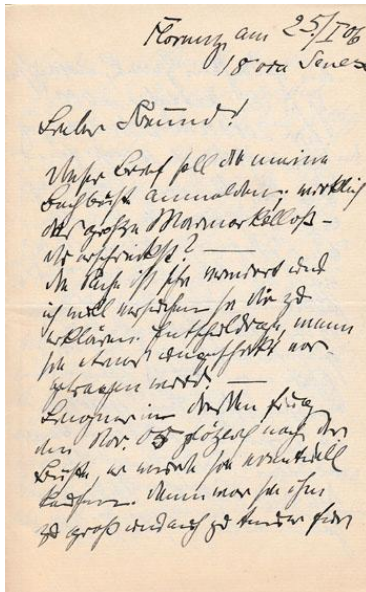 Florenz, am 25./I 06
18 via Senese
Lieber Freund!
Dieser Brief soll dir meine
Bachbüste anmelden. wirklich
den großen Marmorkolloß –
du erschrickst? —
die Sache ist sehr verwirrt und
ich will versuchen sie dir zu
erklären. Entschuldige, wenn
sie etwas ungeschickt vor-
getragen wird. —
in Dresden frug
den Nov. 05 plötzlich nach der
Büste, er würde sie eventuell
kaufen. dann war sie ihm
zu groß und auch zu teuer für